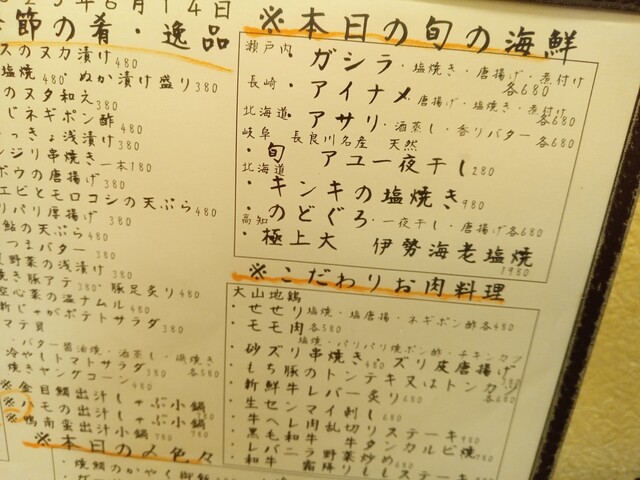 6月14日
節の肴・逸品
スのヌカ漬け 480
塩焼 480 ぬか漬け盛り 380
のヌタ和え 380
じネギポン酢 480
っきょ浅漬け 380
ンジリ串焼き 一本180
ボウの唐揚げ 380
エビとモロコシの天ぷら 480
リパリ厚揚げ 380
鮎の天ぷら 480
つまバター 380
野菜の浅漬け 380
焼き豚アテ 380 豚足炙り 480
空心菜の温ナムル 480
新じゃがポテトサラダ 380
マテ貝
・バター醤油焼・酒蒸し・磯焼き 各580
冷やしトマトサラダ 380
焼きヤングコーン 480
※金目鯛出汁しゃぶ小鍋
※ハモの出汁しゃぶ小鍋 980
※鴨南蛮出汁小鍋 780
※本日の〆色々
・焼鯛のかやく御飯
※本日の旬の海鮮
瀬戸内・ガシラ・塩焼き・唐揚げ・煮付け 各680
長崎・アイナメ・唐揚げ・塩焼き・煮付け 各680
北海道・アサリ・酒蒸し・香りバター・各580
岐阜 長良川名産 天然
・旬 アユ一夜干し 280
北海道・キンキの塩焼き 980
・のどぐろ・一夜干し・唐揚げ各680
高知・極上大 伊勢海老塩焼 1980
※こだわりお肉料理
大山地鶏
・せせり 塩焼・塩唐揚・ネギポン酢各480
・モモ肉 各580 塩焼・パリパリ焼ポン酢・チキンカツ
・砂ズリ串焼き 480 ・ズリ皮唐揚げ 380
・もち豚のトンテキ又はトンカツ 各680
・新鮮牛レバー炙り 680
・生センマイ刺し 680
・牛ヘレ肉乱切りステーキ 980
・黒毛和牛 牛タンカルビ焼 780
・レバニラ野菜炒め 680
・和牛 霜降りしステーキ